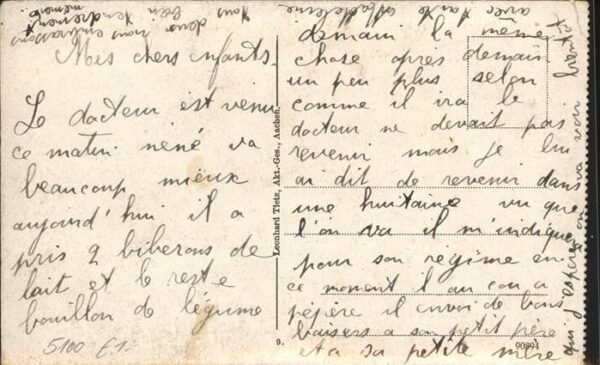 Mes chers enfants.
Le docteur est venu
ce matin néné va
beaucoup mieux
aujourd'hui il a
pris 2 biberons de
lait et le reste
bouillon de légume
demain la même
chose apres demain
un peu plus selon
comme il ira le
docteur ne devait pas
revenir mais je lui
ai dit de revenir dans
une huitaine vu que
l'on va il m'indique
pour son régime en
ce moment l'on au cou a
pépère il envoi de bons
baisers a son petit père
et a sa petite mère
qui j'espère on va voir
bientot
avec tante
tous deux bien tendrement
nous embrassons
mémère
Leonhard Tietz, Akt.-Ges., Aachen.
9.
90894
5100 £1-